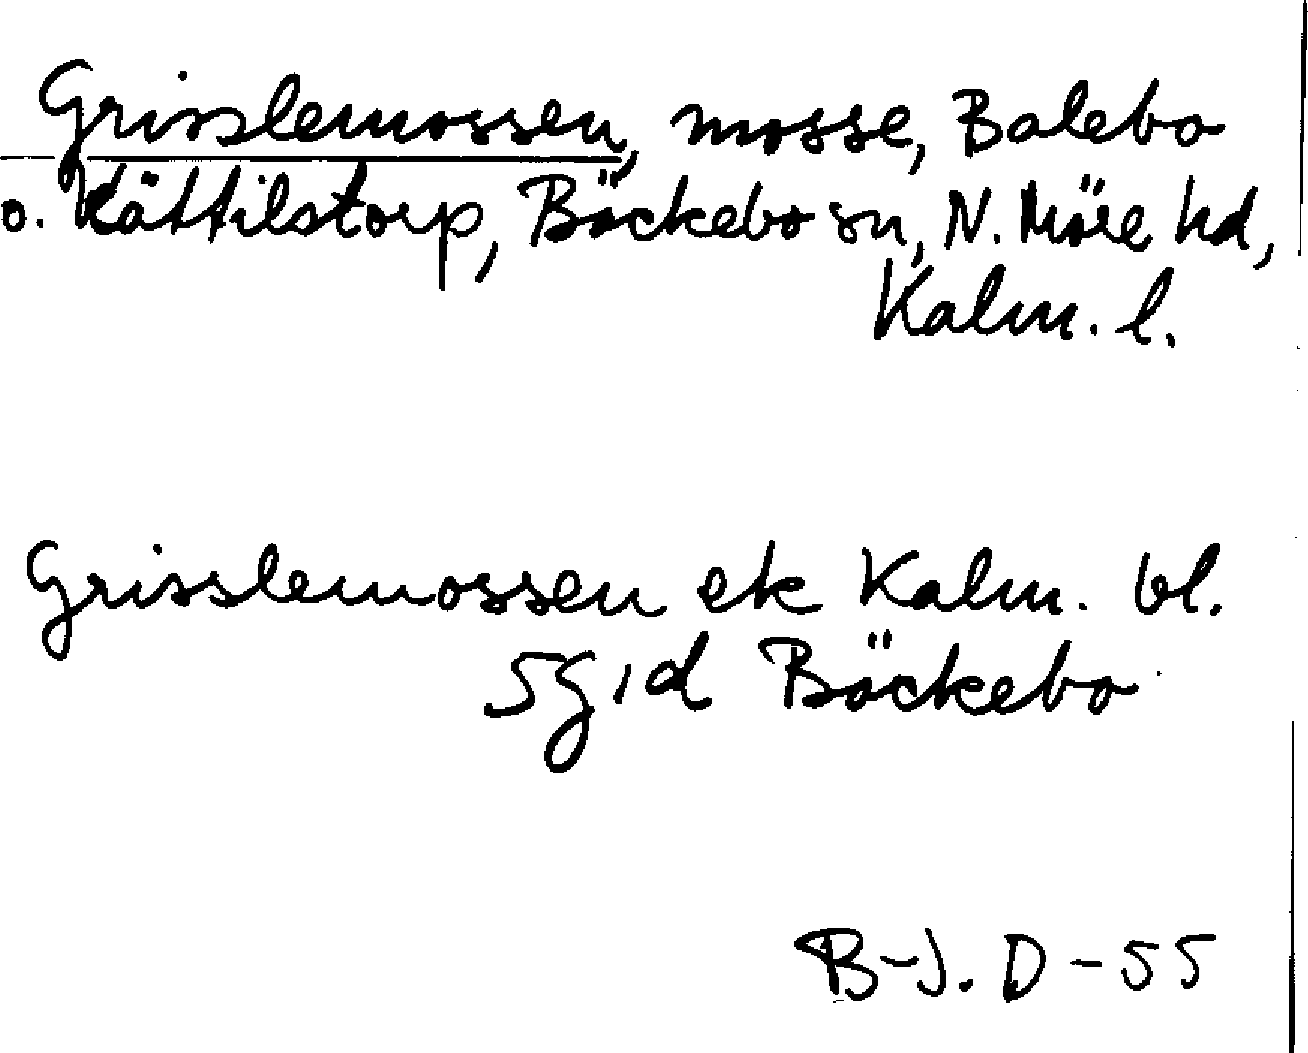 Grisslemossen, mosse, Balebo
o. Kättilstorp, Bäckebo sn, N. Möre hd,
Kalm. l.
Grisslemossen ek Kalm. bl.
5g, d Bäckebo
B-J. D-55